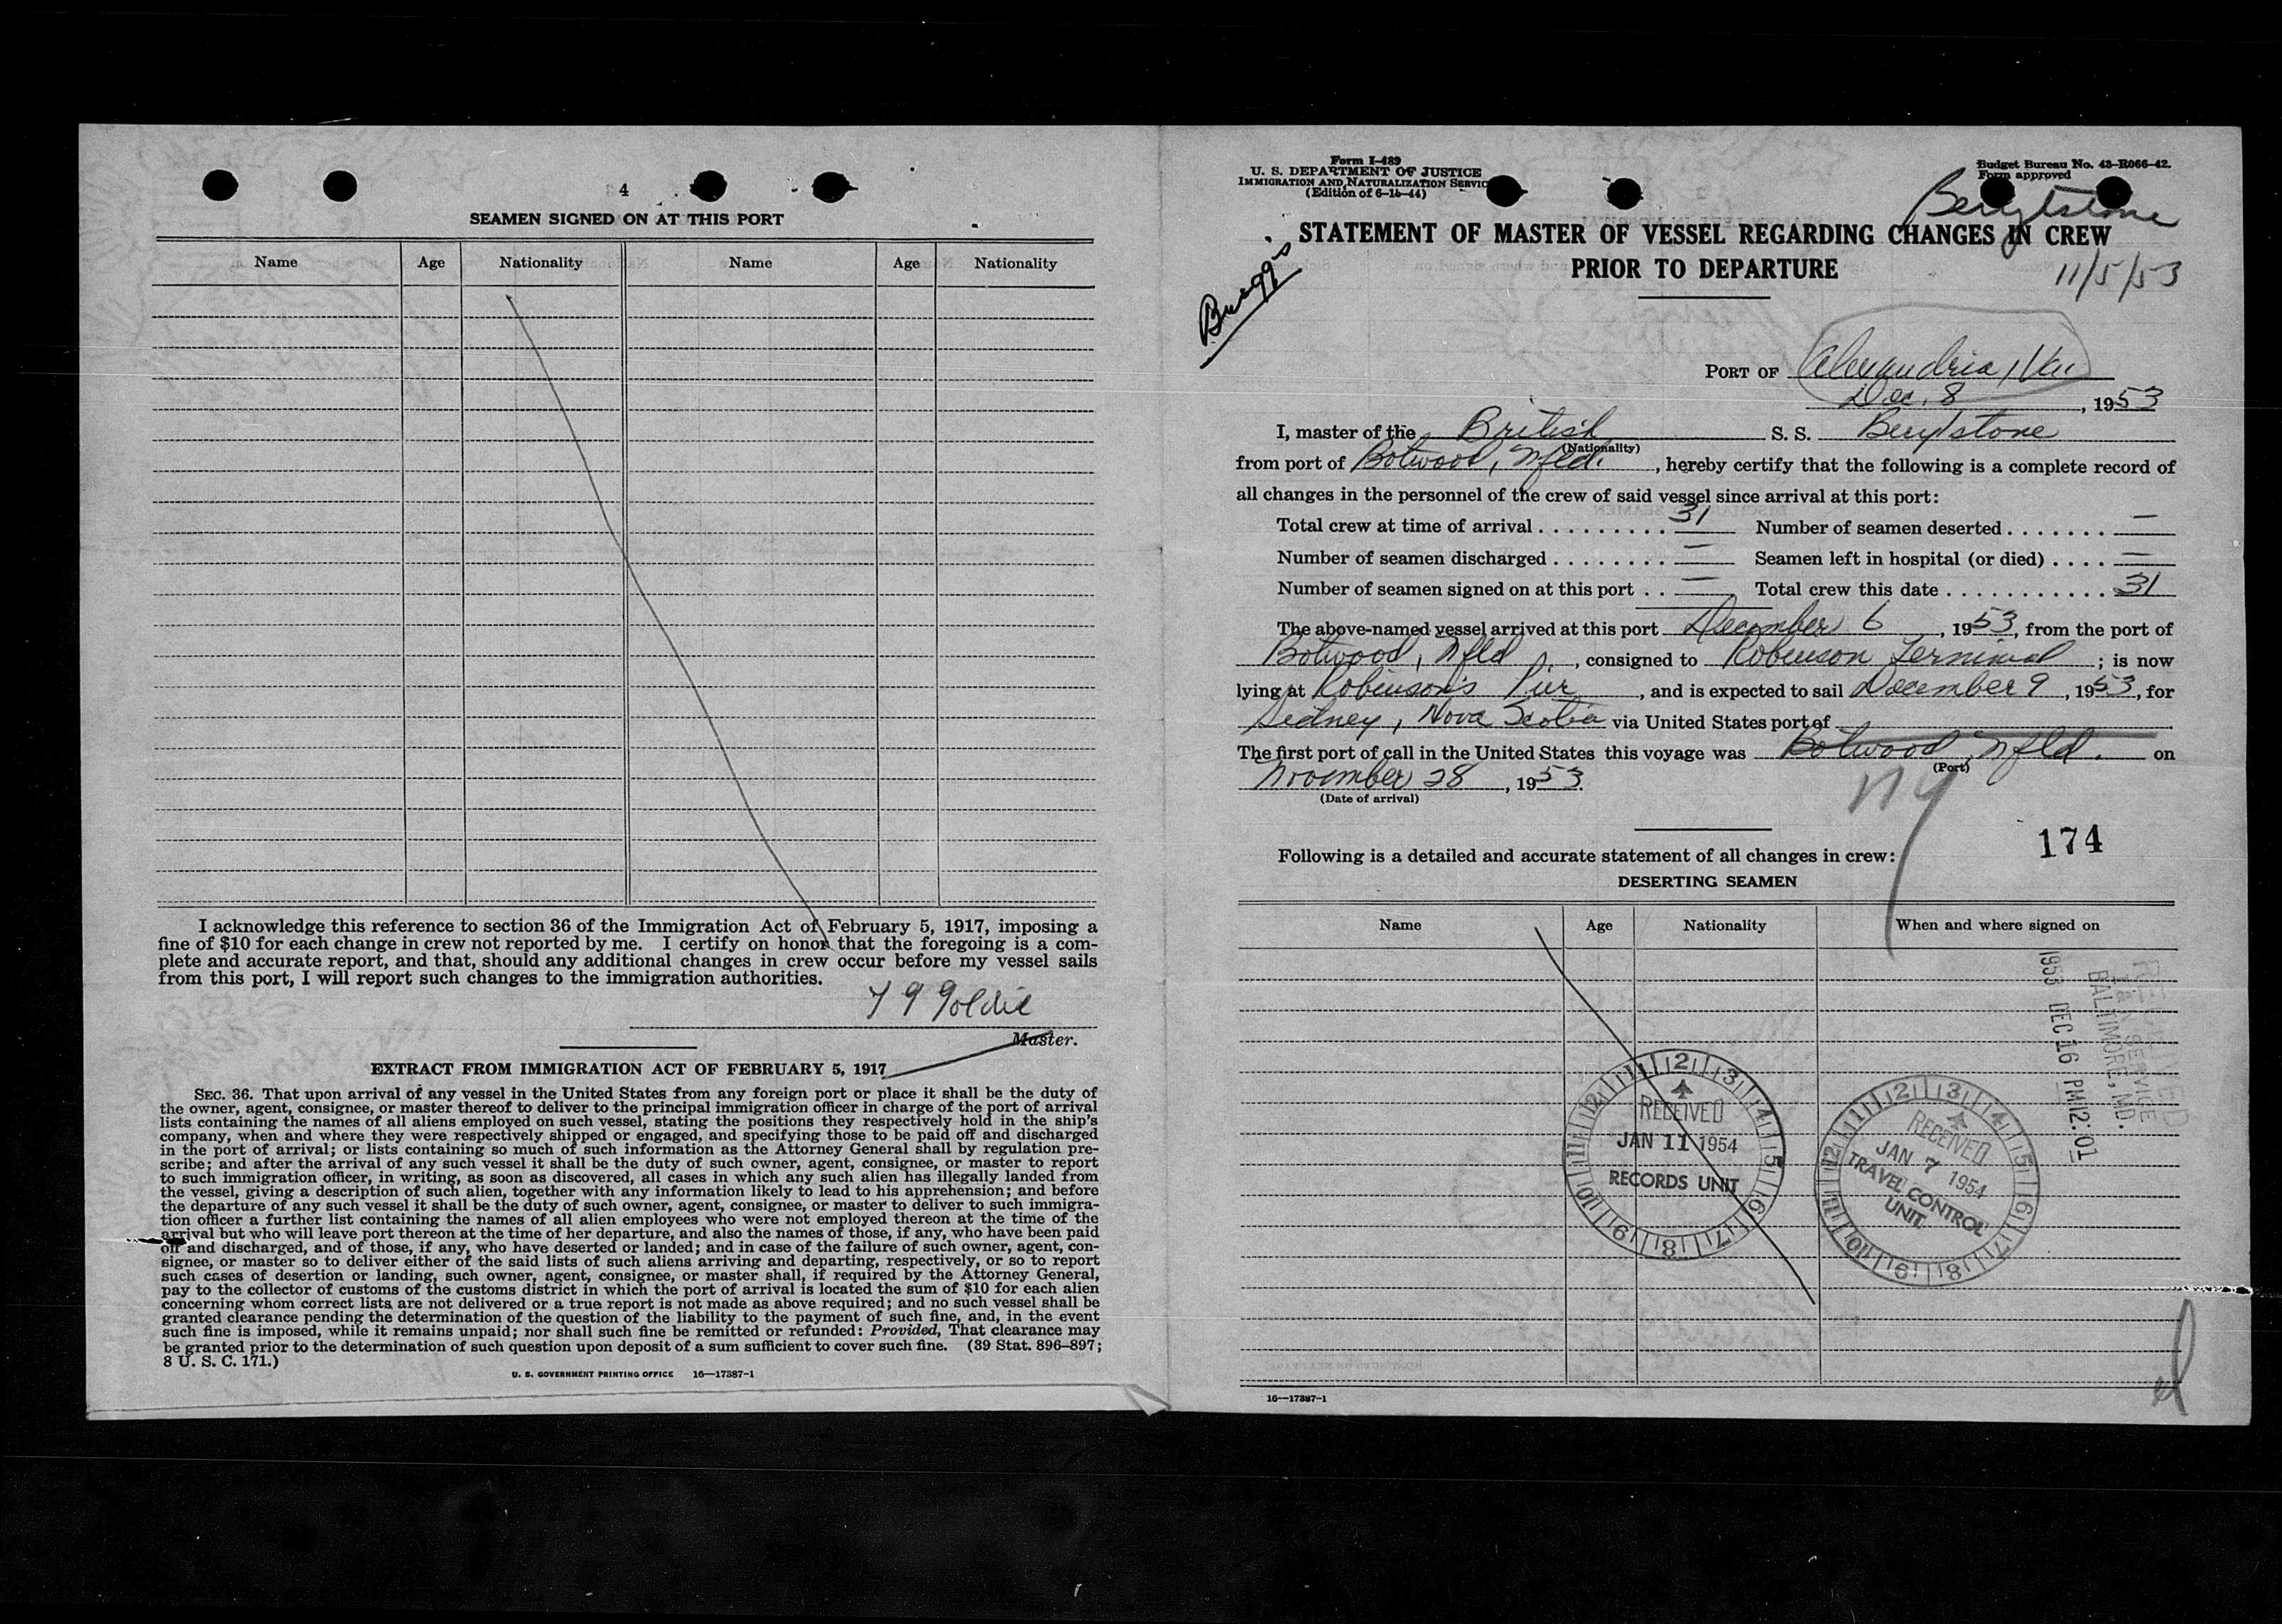 4
SEAMEN SIGNED ON AT THIS PORT
Name Age Nationality Name Age Nationality
I acknowledge this reference to section 36 of the Immigration Act of February 5, 1917, imposing a
fine of $10 for each change in crew not reported by me. I certify on honor that the foregoing is a com-
plete and accurate report, and that, should any additional changes in crew occur before my vessel sails
from this port, I will report such changes to the immigration authorities.
Goldie
Master.
EXTRACT FROM IMMIGRATION ACT OF FEBRUARY 5, 1917
SEC. 36. That upon arrival of any vessel in the United States from any foreign port or place it shall be the duty of
the owner, agent, consignee, or master thereof to deliver to the principal immigration officer in charge of the port of arrival
lists containing the names of all aliens employed on such vessel, stating the positions they respectively hold in the ship's
company, when and where they were respectively shipped or engaged, and specifying those to be paid off and discharged
in the port of arrival; or lists containing so much of such information as the Attorney General shall by regulation pre-
scribe; and after the arrival of any such vessel it shall be the duty of such owner, agent, consignee, or master to report
to such immigration officer, in writing, as soon as discovered, all cases in which any such alien has illegally landed from
the vessel, giving a description of such alien, together with any information likely to lead to his apprehension; and before
the departure of any such vessel it shall be the duty of such owner, agent, consignee, or master to deliver to such immigra-
tion officer a further list containing the names of all alien employees who were not employed thereon at the time of the
arrival but who will leave port thereon at the time of her departure, and also the names of those, if any, who have been paid
off and discharged, and of those, if any, who have deserted or landed; and in case of the failure of such owner, agent, con-
signee, or master so to deliver either of the said lists of such aliens arriving and departing, respectively, or so to report
such cases of desertion or landing, such owner, agent, consignee, or master shall, if required by the Attorney General,
pay to the collector of customs of the customs district in which the port of arrival is located the sum of $10 for each alien
concerning whom correct lists are not delivered or a true report is not made as above required; and no such vessel shall be
granted clearance pending the determination of the question of the liability to the payment of such fine, and, in the event
such fine is imposed, while it remains unpaid; nor shall such fine be remitted or refunded: Provided, That clearance may
be granted prior to the determination of such question upon deposit of a sum sufficient to cover such fine. (39 Stat. 896-897;
8 U. S. C. 171.)
U. S. GOVERNMENT PRINTING OFFICE 16—17387-1
Form I-489
U. S. DEPARTMENT OF JUSTICE
IMMIGRATION AND NATURALIZATION SERVIC
(Edition of 6-15-44)
Budget Bureau No. 43-R066-42.
Form approved
Berylstone
STATEMENT OF MASTER OF VESSEL REGARDING CHANGES IN CREW
PRIOR TO DEPARTURE
11/5/53
PORT OF Alexandria, Va
Dec. 8, 1953
I, master of the British S. S. Berylstone
(Nationality)
from port of Botwood, Nfld., hereby certify that the following is a complete record of
all changes in the personnel of the crew of said vessel since arrival at this port:
Total crew at time of arrival ......... 31 Number of seamen deserted ....... —
Number of seamen discharged ........ — Seamen left in hospital (or died) .... —
Number of seamen signed on at this port .. — Total crew this date ........... 31
The above-named vessel arrived at this port December 6, 1953, from the port of
Botwood, Nfld., consigned to Robinson Terminal; is now
lying at Robinson's Pier, and is expected to sail December 9, 1953, for
Sidney, Nova Scotia via United States port of
The first port of call in the United States this voyage was Botwood, Nfld. on
(Port)
November 28, 1953.
(Date of arrival)
NY
174
Following is a detailed and accurate statement of all changes in crew:
DESERTING SEAMEN
Name Age Nationality When and where signed on
RECEIVED
I & N SERVICE
BALTIMORE, MD.
1953 DEC 16 PM 12:01
RECEIVED
JAN 11 1954
RECORDS UNIT
RECEIVED
JAN 7 1954
TRAVEL CONTROL
UNIT
16—17387-1